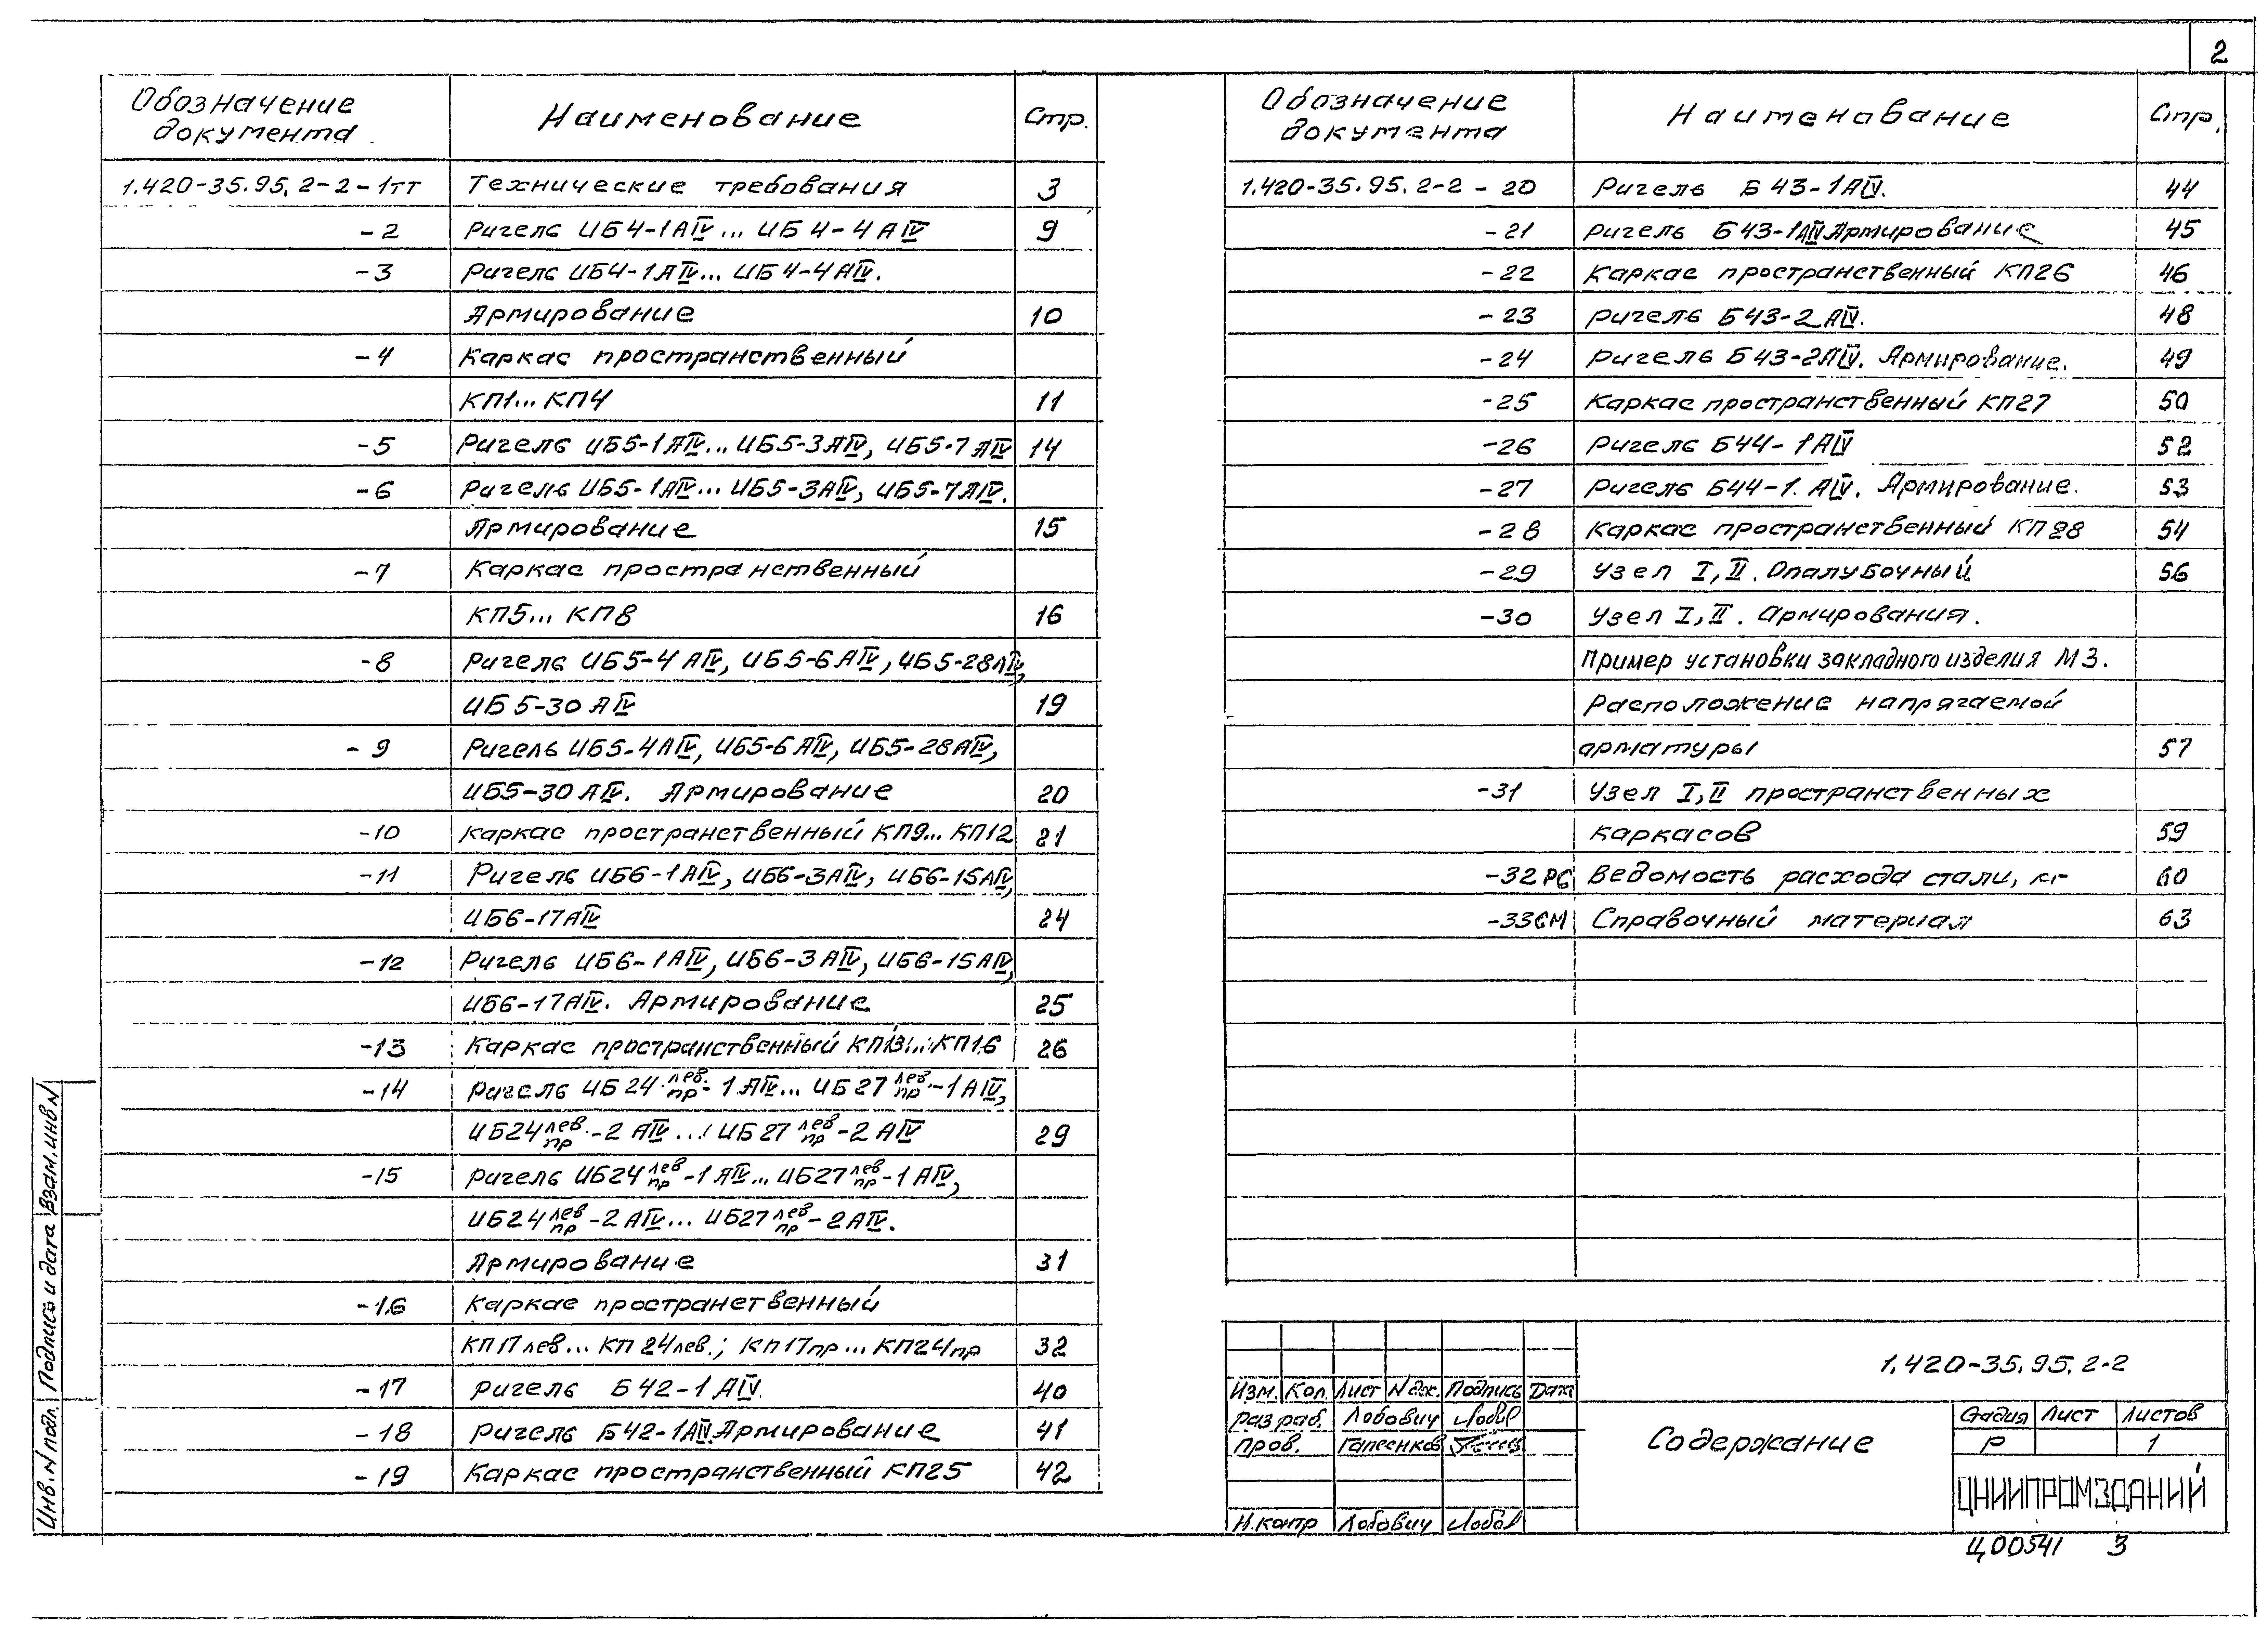 2
Обозначение документа Наименование Стр.
1.420-35.95.2-2-1тт Технические требования 3
-2 Ригель ИБ4-1АIV... ИБ4-4АIV 9
-3 Ригель ИБ4-1АIV... ИБ4-4АIV.
Армирование 10
-4 Каркас пространственный
КП1... КП4 11
-5 Ригель ИБ5-1АIV... ИБ5-3АIV, ИБ5-7АIV 14
-6 Ригель ИБ5-1АIV... ИБ5-3АIV, ИБ5-7АIV.
Армирование 15
-7 Каркас пространственный
КП5... КП8 16
-8 Ригель ИБ5-4АIV, ИБ5-6АIV, ИБ5-28АIV,
ИБ5-30АIV 19
-9 Ригель ИБ5-4АIV, ИБ5-6АIV, ИБ5-28АIV,
ИБ5-30АIV. Армирование 20
-10 Каркас пространственный КП9... КП12 21
-11 Ригель ИБ6-1АIV, ИБ6-3АIV, ИБ6-15АIV,
ИБ6-17АIV 24
-12 Ригель ИБ6-1АIV, ИБ6-3АIV, ИБ6-15АIV,
ИБ6-17АIV. Армирование 25
-13 Каркас пространственный КП13... КП16 26
-14 Ригель ИБ24 лев./пр-1АIV... ИБ27 лев./пр-1АIV,
ИБ24 лев./пр-2АIV... ИБ27 лев/пр-2АIV 29
-15 Ригель ИБ24 лев/пр-1АIV... ИБ27 лев/пр-1АIV,
ИБ24 лев/пр-2АIV... ИБ27 лев/пр-2АIV.
Армирование 31
-16 Каркас пространственный
КП17лев... КП24лев.; КП17пр... КП24пр 32
-17 Ригель Б42-1АIV. 40
-18 Ригель Б42-1АIV. Армирование 41
-19 Каркас пространственный КП25 42
Обозначение документа Наименование Стр.
1.420-35.95.2-2-20 Ригель Б43-1АIV. 44
-21 Ригель Б43-1АIV Армирование 45
-22 Каркас пространственный КП26 46
-23 Ригель Б43-2АIV. 48
-24 Ригель Б43-2АIV. Армирование. 49
-25 Каркас пространственный КП27 50
-26 Ригель Б44-1АIV 52
-27 Ригель Б44-1.АIV. Армирование. 53
-28 Каркас пространственный КП28 54
-29 Узел I, II. Опалубочный 56
-30 Узел I, II. Армирования.
Пример установки закладного изделия М3.
Расположение напрягаемой
арматуры 57
-31 Узел I, II пространственных
каркасов 59
-32РС Ведомость расхода стали, кг 60
-33СМ Справочный материал 63
Инв. N подл. Подпись и дата Взам. инв N
1.420-35.95.2-2
Изм. Кол. Лист N док. Подпись Дата
Разраб. Лобович
Пров. Гапеенков
Н.контр Лобович
Содержание
Стадия Лист Листов
Р 1
ЦНИИПРОМЗДАНИЙ
Ц00541 3